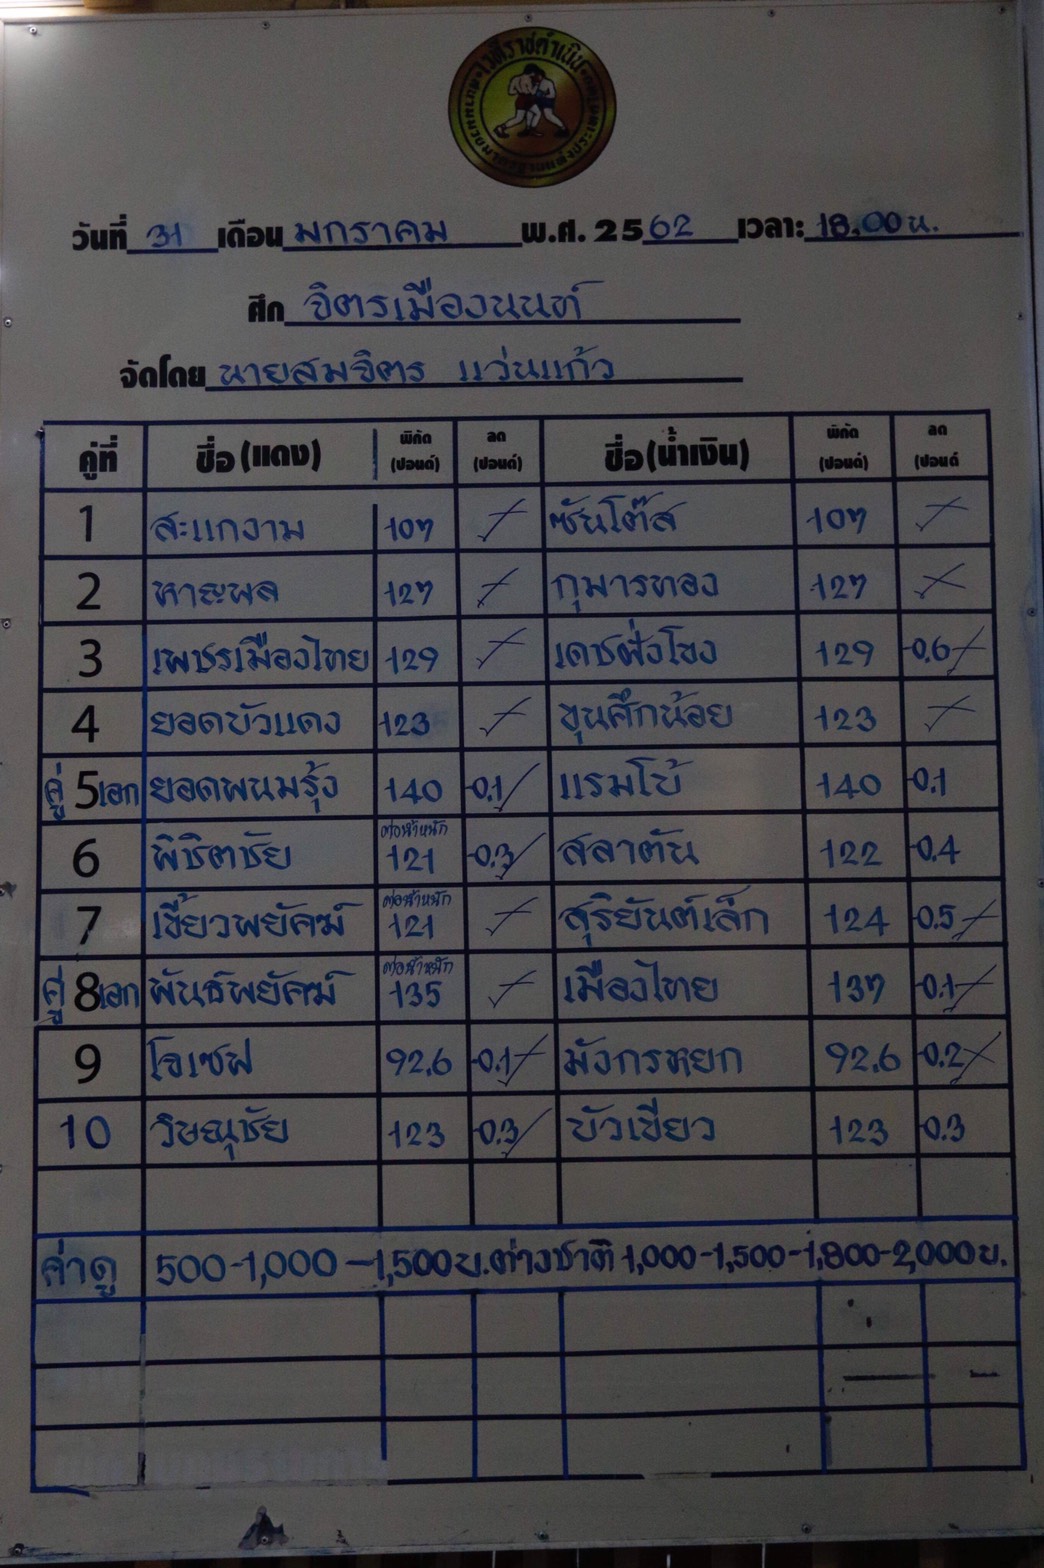 เวทีราชดำเนิน
วันที่ 31 เดือน มกราคม พ.ศ. 2562 เวลา: 18.00 น.
ศึก จิตรเมืองนนท์
จัดโดย นายสมจิตร แว่นแก้ว
คู่ที่ ชื่อ (แดง) พิกัด (ปอนด์) ลด (ปอนด์) ชื่อ (น้ำเงิน) พิกัด (ปอนด์) ลด (ปอนด์)
1 สะแกงาม 107 ซันโต๊ส 107
2 หาระพล 127 กุมารทอง 127
3 เพชรเมืองไทย 129 เดชฝั่งโขง 129 0.6
4 ยอดบัวแดง 123 ขุนศึกน้อย 123
คู่ 5 เอก ยอดพนมรุ้ง 140 0.1 แรมโบ้ 140 0.1
6 พิชิตชัย ต่อน้ำหนัก 121 0.3 สลาตัน 122 0.4
7 เขี้ยวพยัคฆ์ ต่อน้ำหนัก 121 สุริยันต์เล็ก 124 0.5
คู่ 8 เอก พันธ์พยัคฆ์ ต่อน้ำหนัก 135 เมืองไทย 137 0.1
9 โอเซฟ 92.6 0.1 มังกรหยก 92.6 0.2
10 วิษณุชัย 123 0.3 บัวเขียว 123 0.3
ค่าดู 500-1,000-1,500บ. ต่างชาติ 1,000-1,500-1,800-2,000บ.